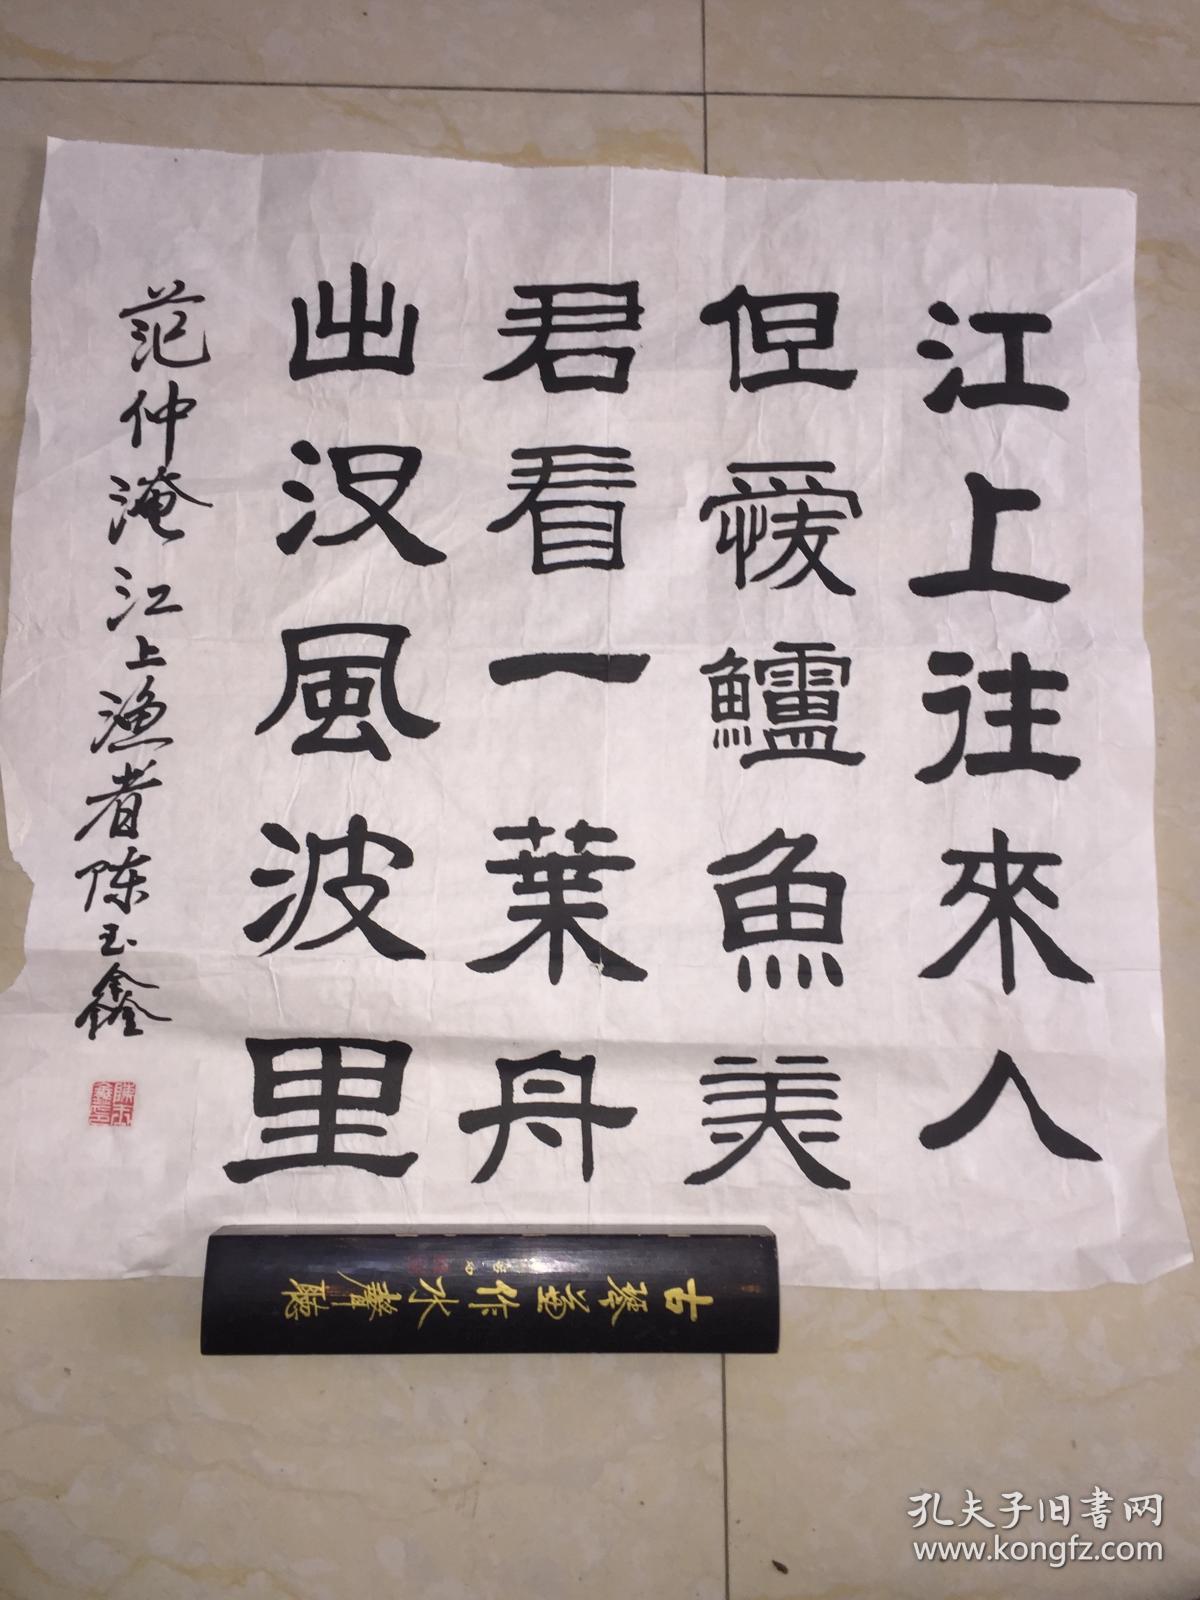 江上往來人
但愛鱸魚美
君看一葉舟
出没風波里
范仲淹江上漁者陈玉鑫
陳玉鑫印
古琴
作水聲聽
孔夫子旧书网
www.kongfz.com